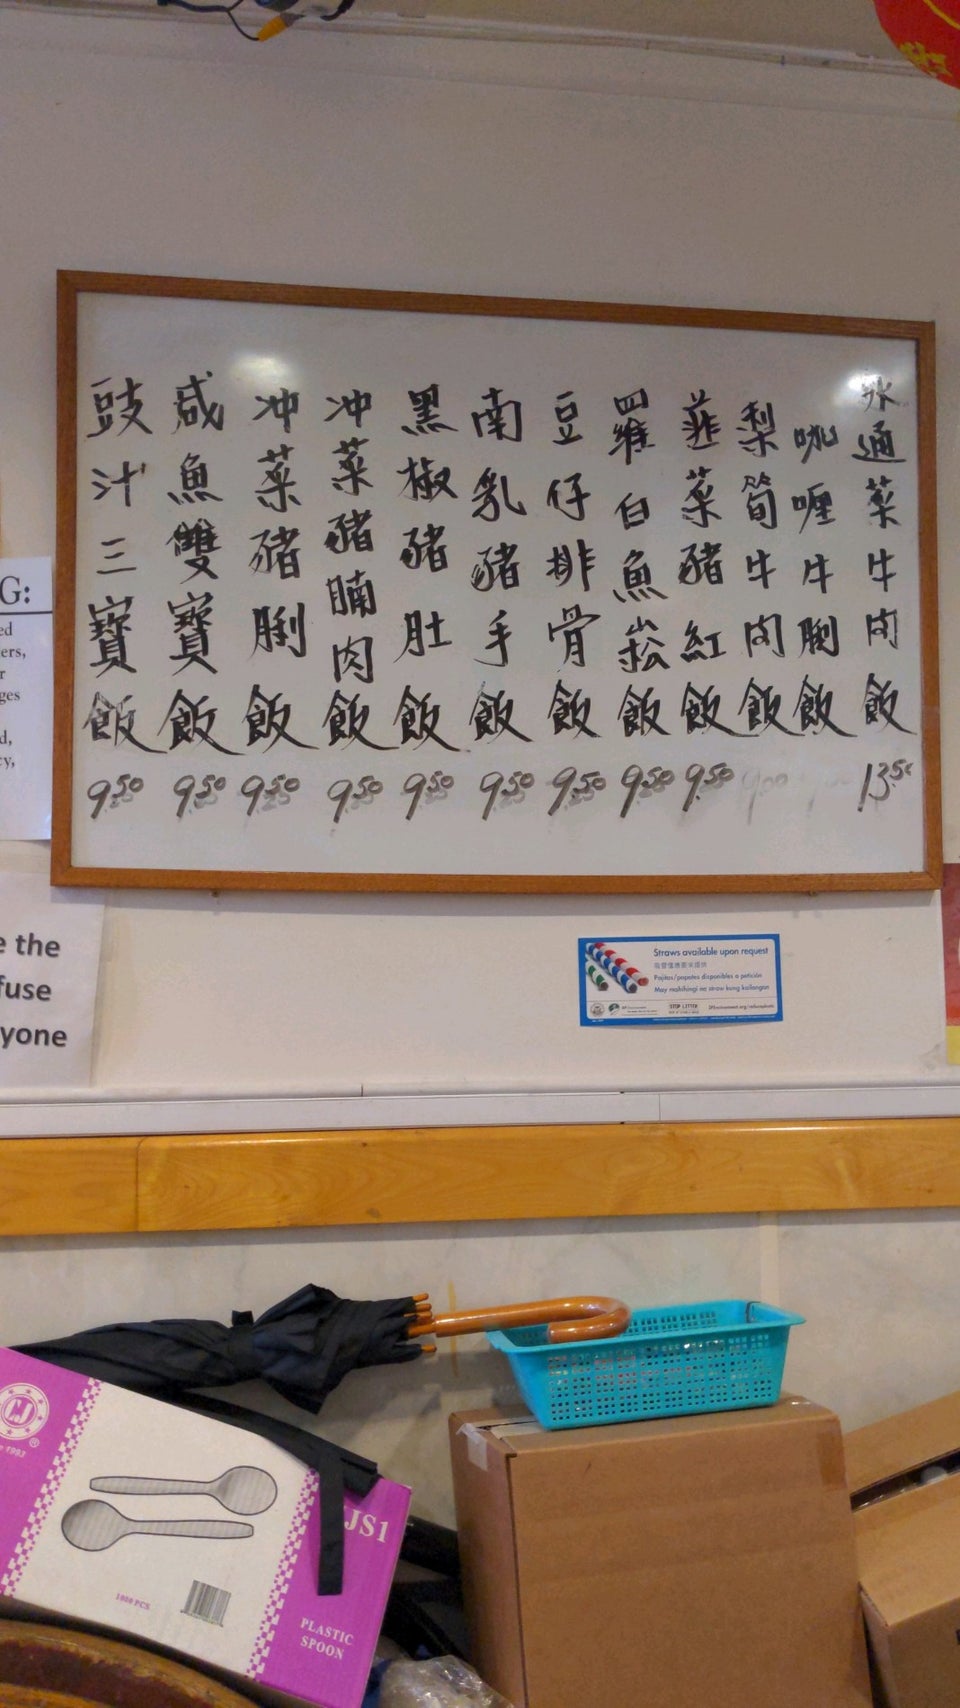 水通菜牛肉飯 13.50
咖喱牛𦟌飯
梨筍牛肉飯 9.00
韮菜豬紅飯 9.50
羅白魚崧飯 9.50
豆仔排骨飯 9.50
南乳豬手飯 9.50
黑椒豬肚飯 9.50
冲菜豬腩肉飯 9.50
冲菜豬脷飯 9.50
咸魚雙寶飯 9.50
豉汁三寶飯 9.50
G:
ed
ers,
r
ges
d,
cy,
e the
fuse
yone
Straws available upon request
Pajitas/popotes disponibles a petición
May mahihingi na straw kung kailangan
STOP LITTER
JS1
1000 PCS
PLASTIC
SPOON